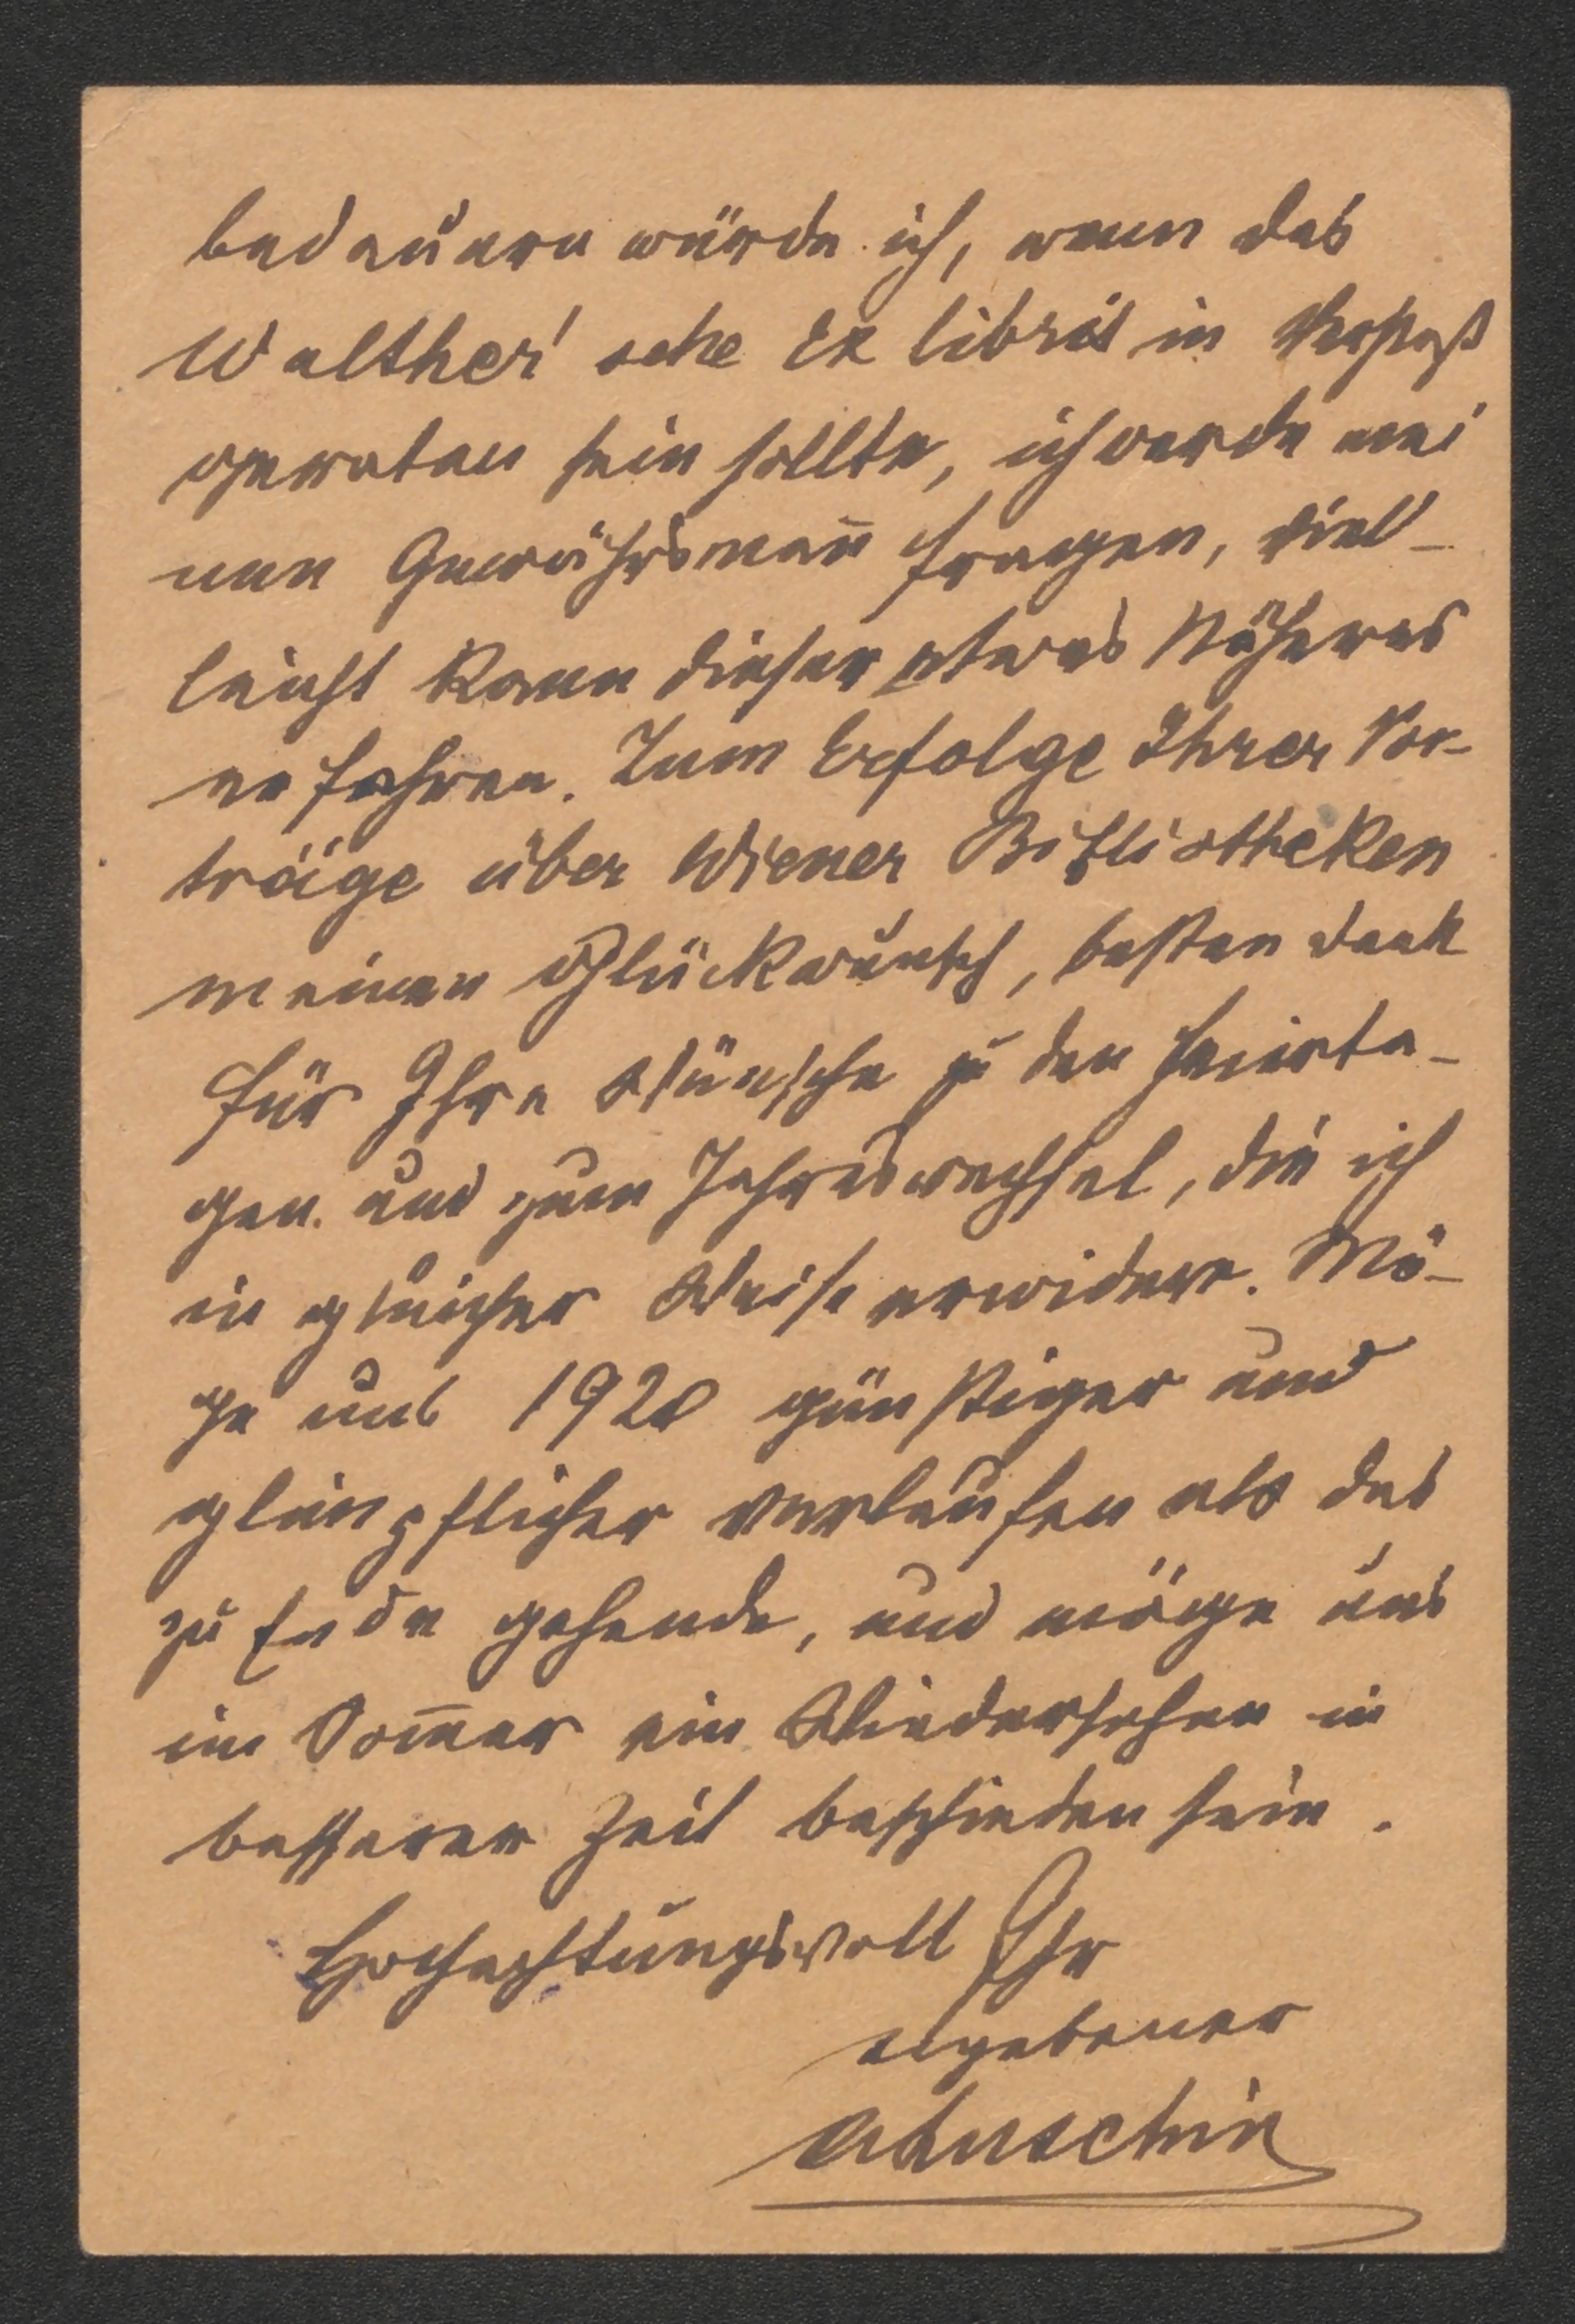 bedauern würde ich, wenn das
Walther'sche Ex libris in Verstoß
geraten sein sollte, ich werde mei
nen Gewährsmañ fragen, viel-
leicht kann dieser etwas Näheres
erfahren. Zum Erfolge Ihrer Vor-
träge über Wiener Bibliotheken
meinen Glückwunsch, besten Dank
für Ihre Wünsche zu den Feierta-
gen und zum Jahreswechsel, die ich
in gleicher Weise erwidere. Mö-
ge uns 1920 günstiger und
glimpflicher verlaufen als das
zu Ende gehende, und möge uns
im Som̄er ein Wiedersehen in
besserer Zeit beschieden sein.
Hochachtungsvoll Ihr
ergebener
Luschin